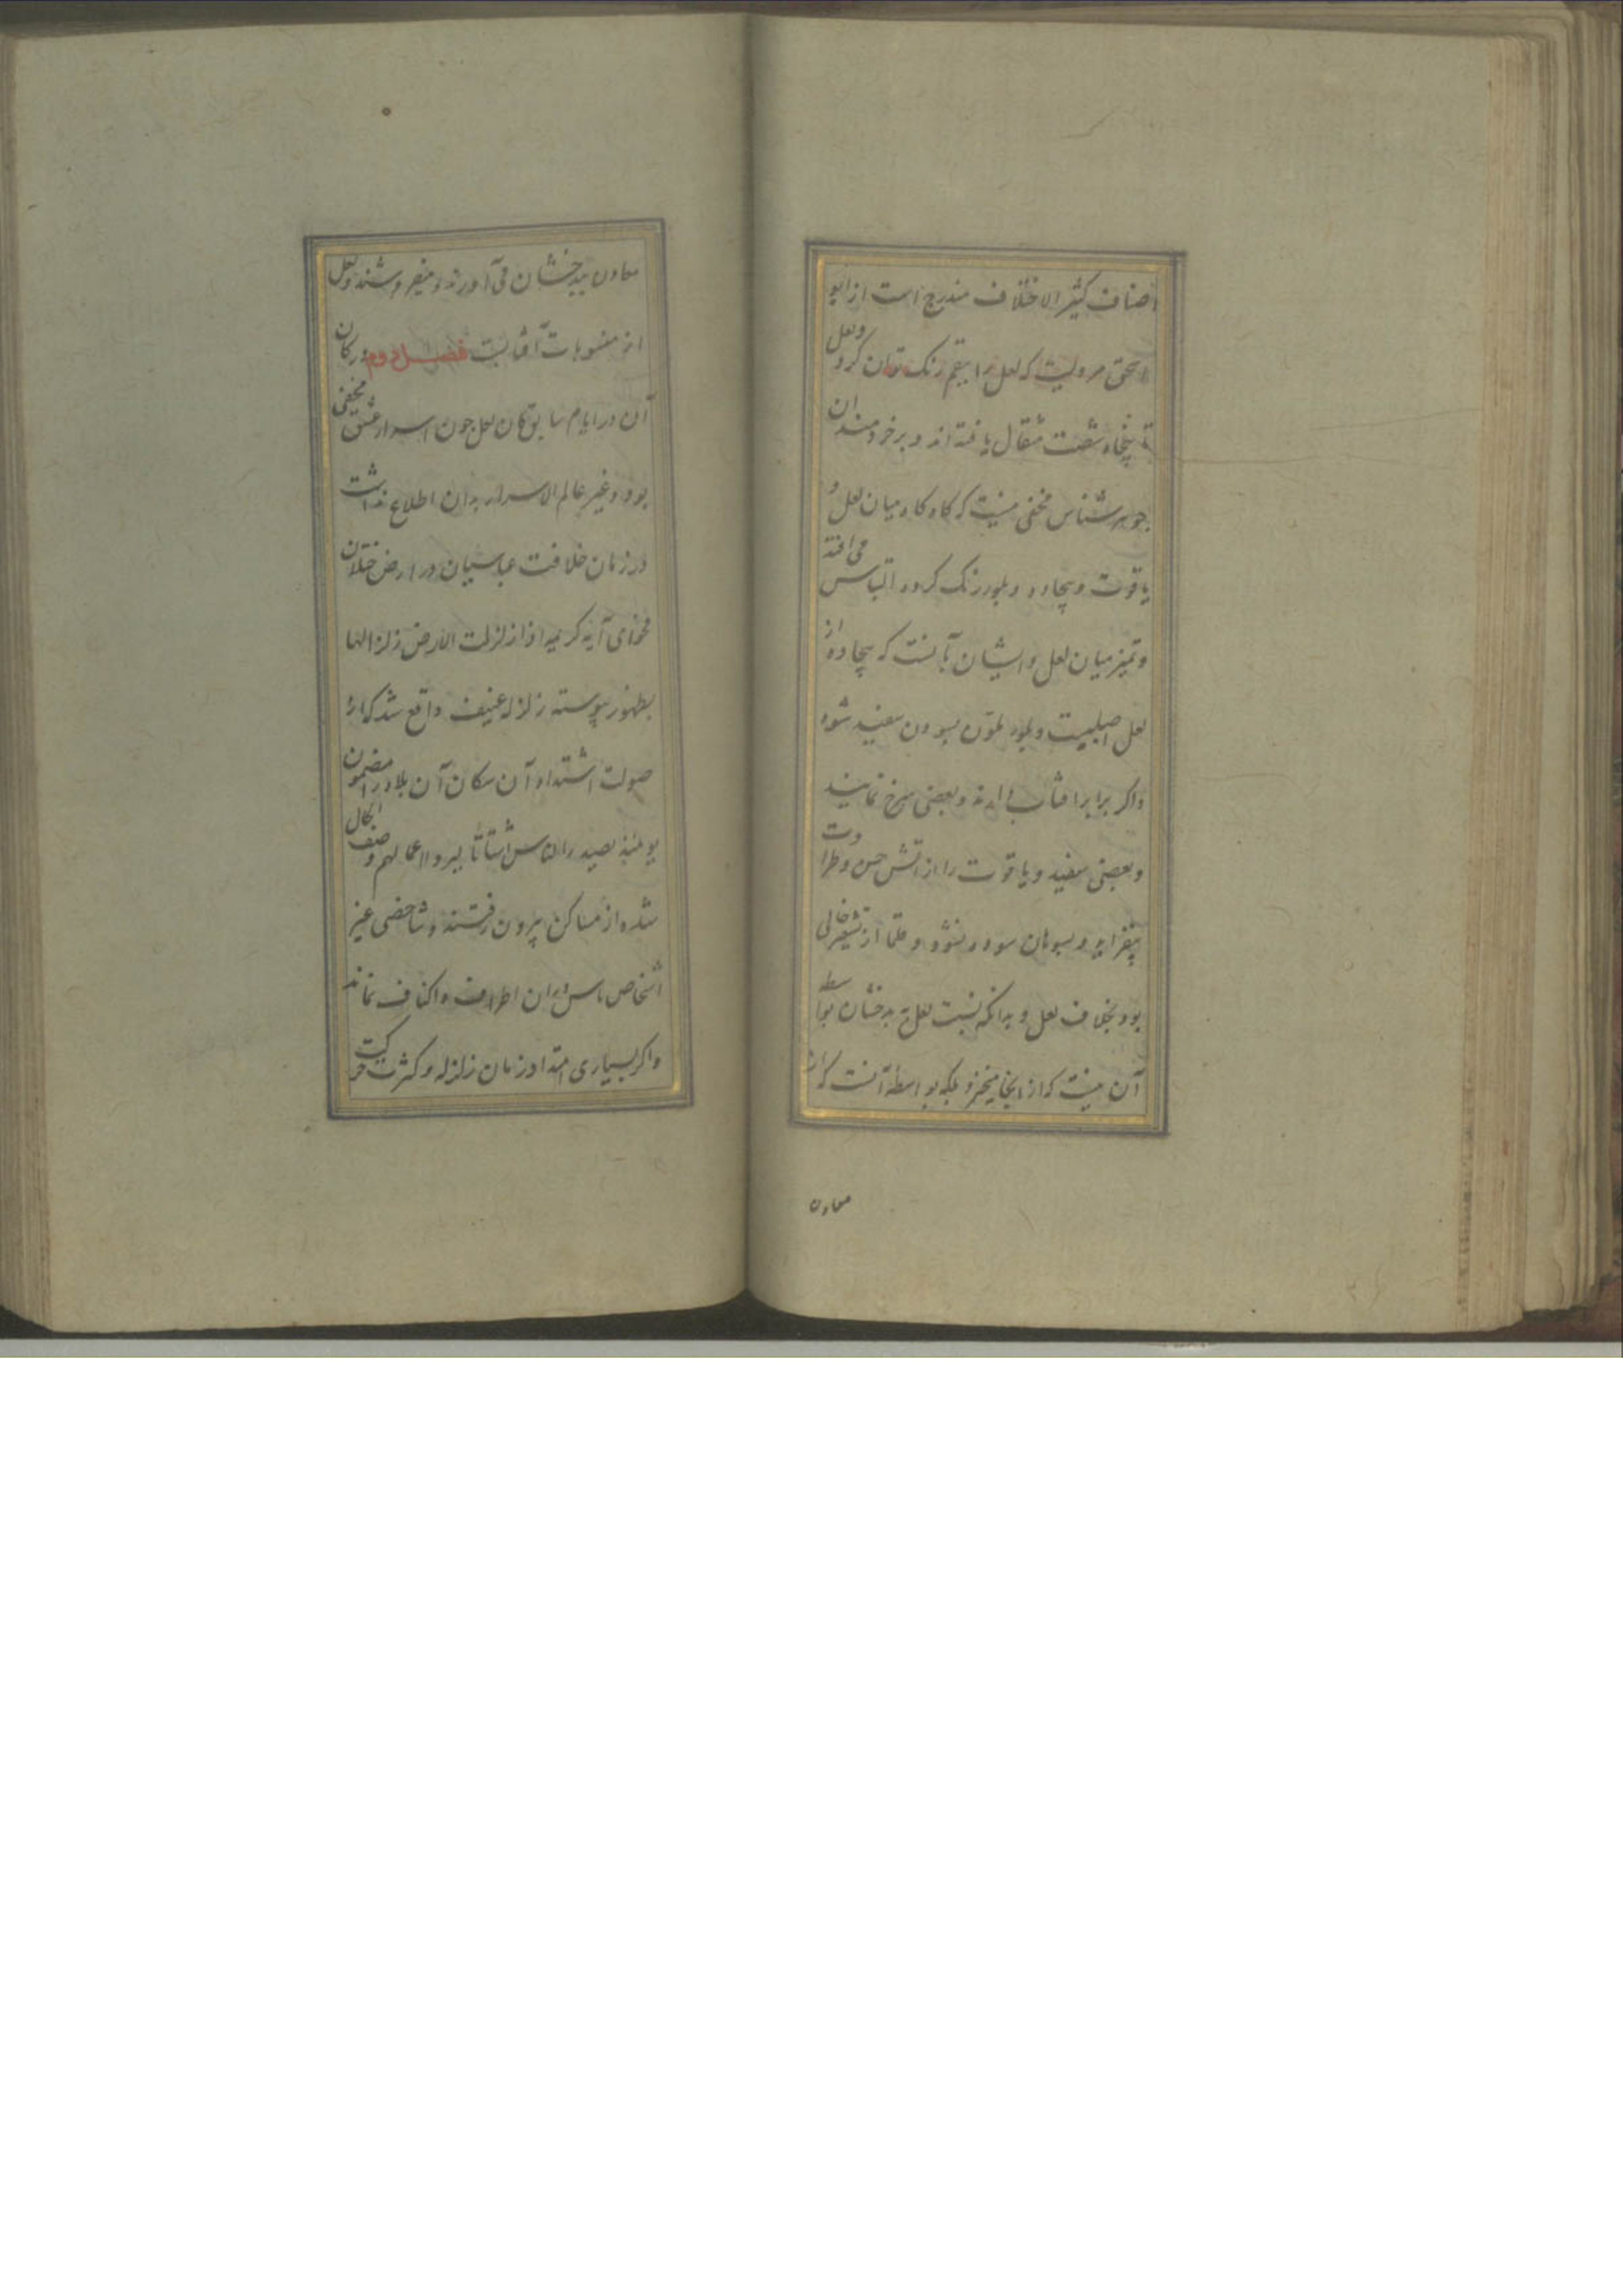 اصناف کثیر الاختلاف مندرج است از ابو
اسحق مرویست که لعل را ببقم رنک توان کرد ولعل
تا پنجاه شصت مثقال یافته اند و بر خردمندان
جوهرشناس مخفی نیست که کاه کاه میان لعل و
یاقوت و بیجاده و بلور رنک کرده التباس می افتد
و تمیز میان لعل و ایشان بآنست که بیجاده از
لعل اصلبست و بلور ملون بسودن سفید شود
واکر برابر افتاب دارند و بعضی سرخ نمایند
و بعضی سفید و یاقوت را از آتش حسن و طراوت
بیفزاید و بسوهان سوده نشود و خالی
بود بخلاف لعل و بدانکه نسبت لعل به بدخشان بواسطه
آن نیست که از انجا میخیزد بلکه بواسطه آنست که از
معادن
معادن ببدخشان می آورند و میفروشند و لعل
از منسوبات آفتابست فصل دوم در کان
آن در ایام سابق کان لعل جون اسرار عشق مخفی
بود و غیر عالم الاسرار بدان اطلاع نداشت
در زمان خلافت عباسیان در ارض ختلان
فحوای آیه کریمه اذا زلزلت الارض زلزالها
بظهور پیوسته زلزله عنیف واقع شد که از
صولت اشتداد آن سکان آن بلاد را مضمون
یومئذ یصدر الناس اشتاتا لیروا اعمالهم وصف الحال
شده از مساکن بیرون رفتند و شاخصی غیر
اشخاص اطراف و اکناف نماند
واکر بسیاری امتداد زمان زلزله و کثرت حرکت